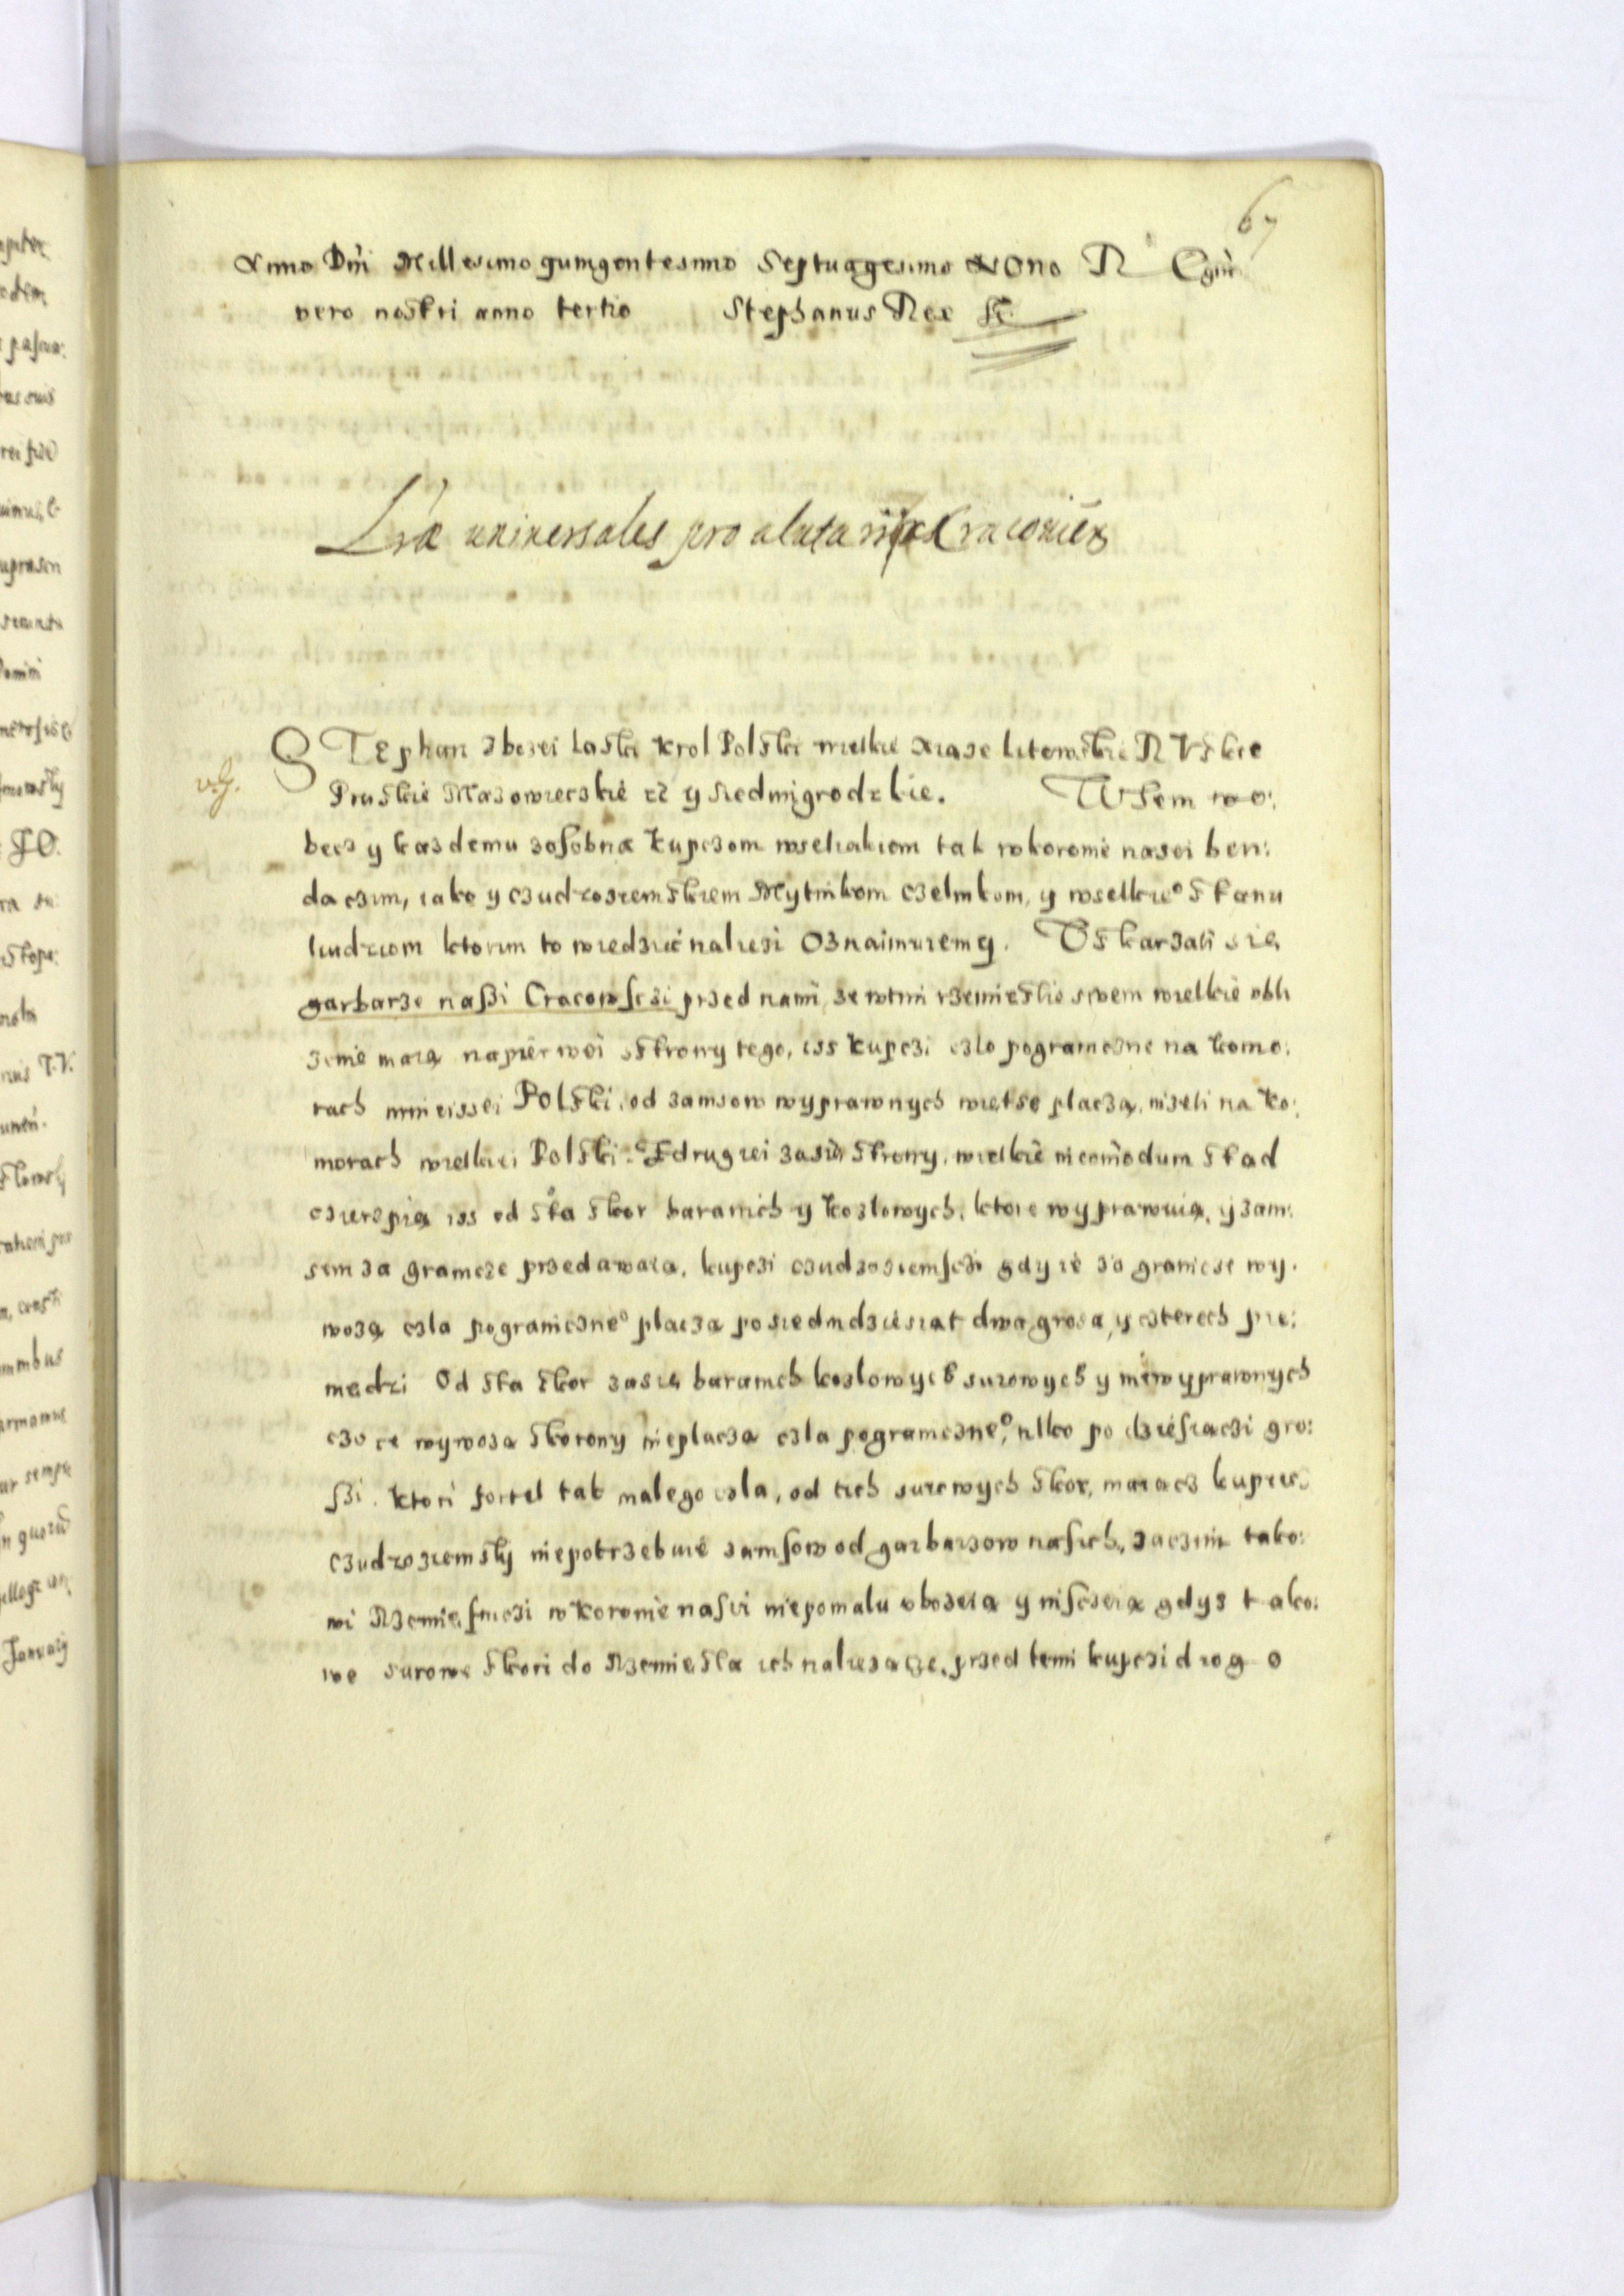 67
Anno Dni Millesimo quingentesimo Septuagesimo Nono R Egni
vero nostri anno tertio Stephanus Rex
Lrae universales pro alutariis Cracovien
STEphan zbozei Laski Krol Polski wielkie xiaze Litewskie RUskie
Pruskie Mazowieczkie y siedmigrodzkie. WSem wo:
becz y kazdemu zosobna kupczom wseliakiem tak wkoronie nasei ben:
daczim, iako y czudzoziemskiem Mytnikom czelnikom, y wselkieo stanu
liudziom ktorim to wiedziec nalezi Oznaimuiemy. Uskarzali sie
garbarze naszi Cracowsczi przed nami, ze wtim rzemieslie swem wielkie obli
zenie maia napierwei sstrony tego, iss kupczi czlo pograniczne na komo:
rach mnieissei Polski, od zamsow wyprawnych wietse placza, nizeli na ko:
morach wielkiei Polski. Zdrugiei zasie strony, wielkie incomodum stad
czierpia iss od sta skor baranich y kozlowych, ktore wyprawuia, y zam:
sem za granicze przedawaia, kupczi czudzoziemsczi gdy ie za granicze wy:
woza czla pograniczneo placza po siedmdziesiat dwa grosa, y czterech pie:
niedzi Od sta skor zasie baranich kozlowych surowych y niewyprawnych
czo ie wywoza skorony nieplacza czla pograniczneo, tilko po dziesiaczi gro:
szi. Ktori fortel tak malego czla, od tich surowych skor, maiacz kupiecz
czudzoziemsky niepotrzebuie zamsow od garbarzow nasich, zaczim tako:
wi Rzemiesniczi wkoronie nasei niepomalu ubozeia y nisczeia gdys tako:
we surowe skori do Rzemiesla ich nalezacze, przed temi kupczi drogo